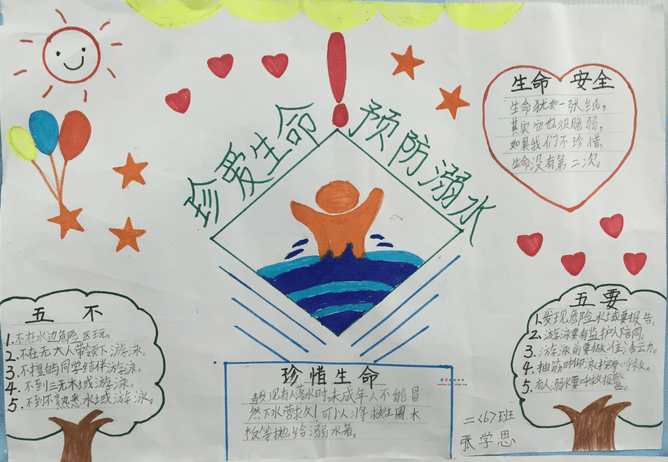 珍爱生命
预防溺水
生命 安全
生命犹如一张纸,
其实它也很脆弱,
如果我们不珍惜,
生命没有第二次。
五 不
1.不在水边危险区玩。
2.不在无大人带领下游泳。
3.不擅自同学结伴游泳。
4.不到三无水域游泳。
5.不到不熟悉水域游泳。
珍惜生命
发现有人落水时,未成年人不能冒
然下水营救!可以将救生圈、木
板等抛给溺水者。
五 要
1.发现危险水域要报告。
2.游泳要有监护人陪同。
3.游泳前要做准备活动。
4.抽筋时仰泳呼救。
5.有人溺水要呼救报警。
二(6)班
张学思